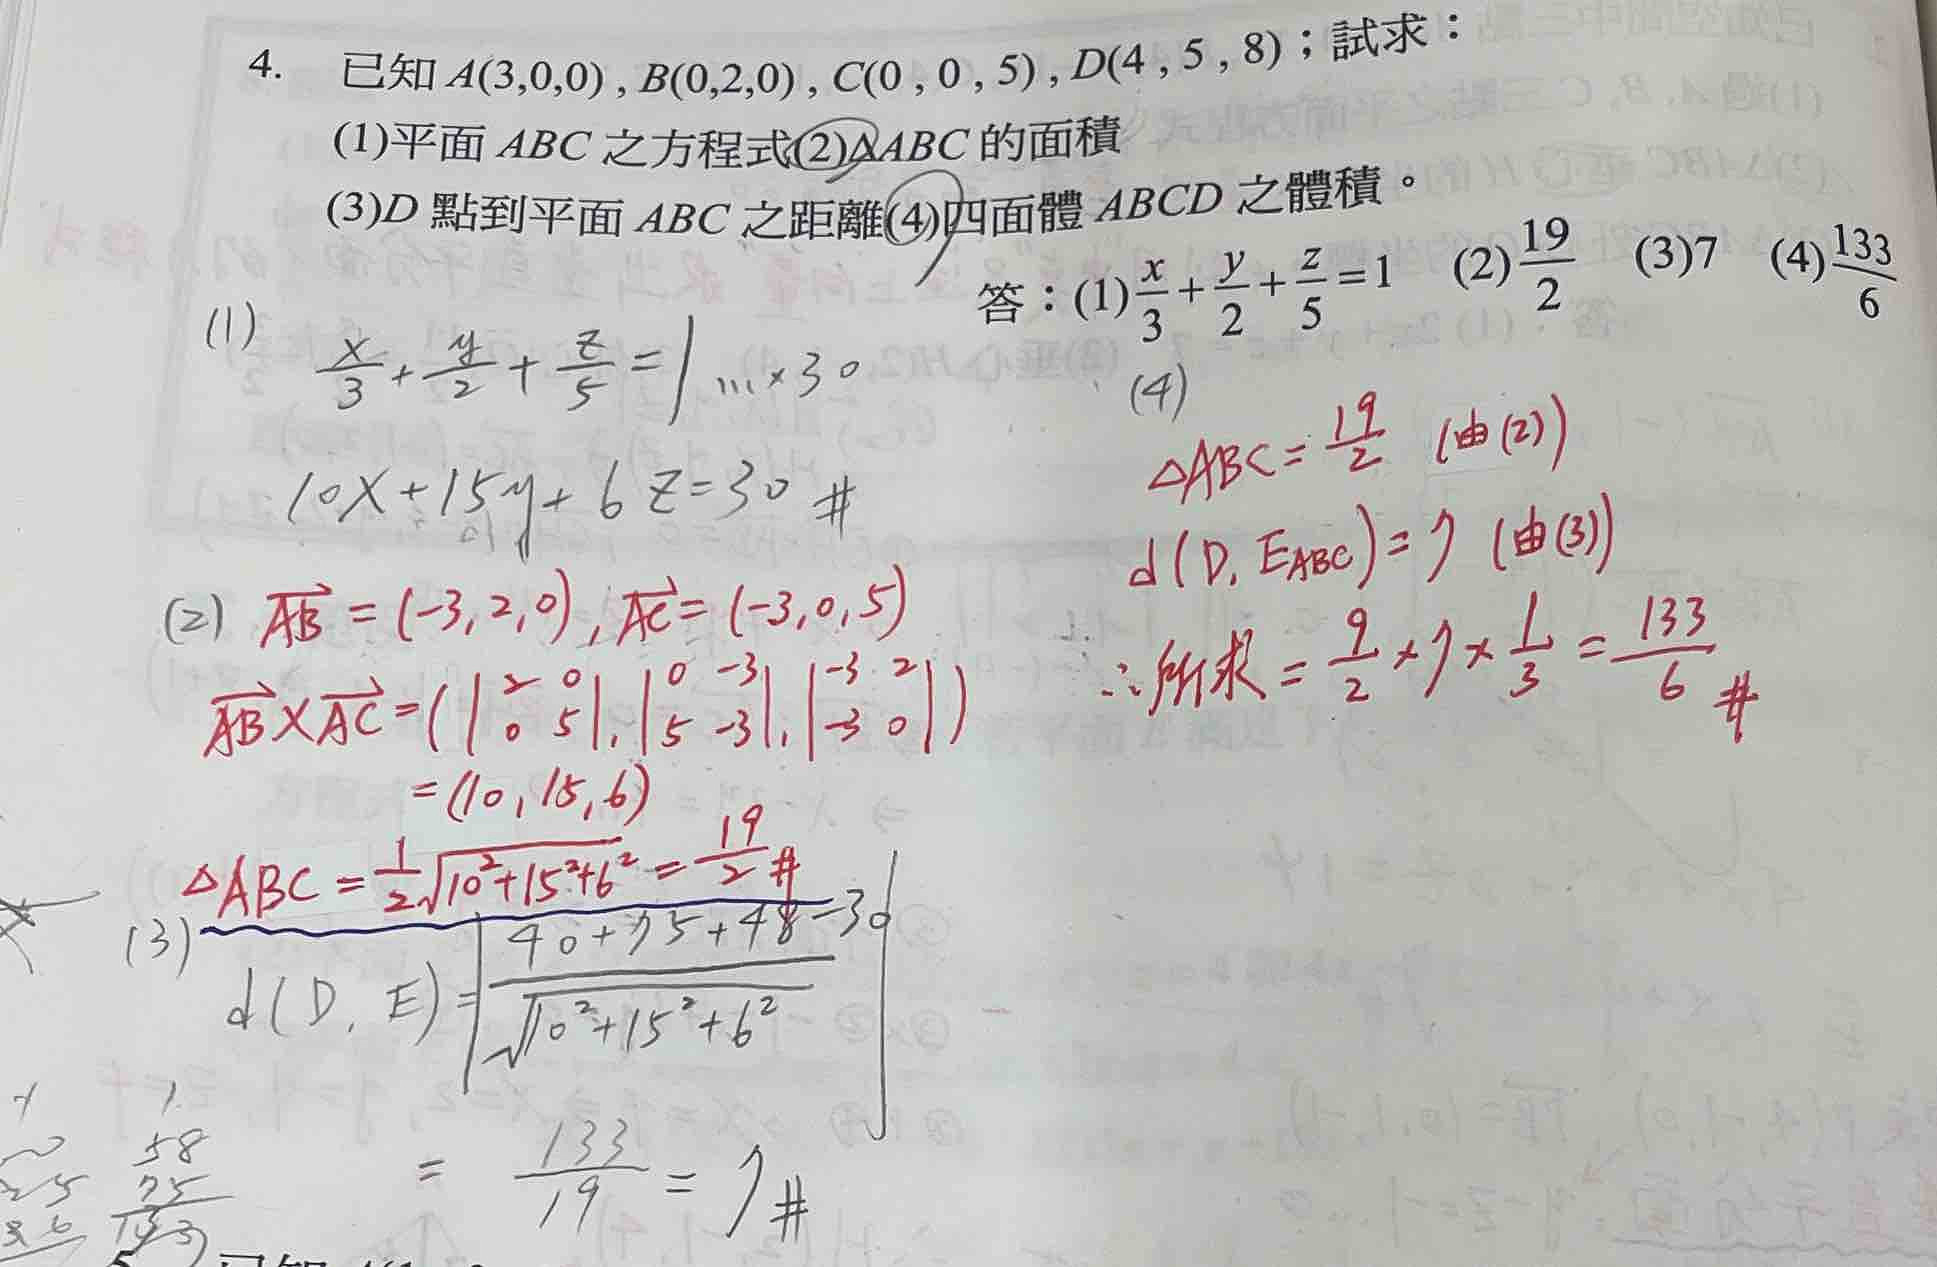 4. 已知 A(3,0,0) , B(0,2,0) , C(0 , 0 , 5) , D(4 , 5 , 8)；試求：
(1)平面 ABC 之方程式(2)ΔABC 的面積
(3)D 點到平面 ABC 之距離(4)四面體 ABCD 之體積。
答：(1) x/3 + y/2 + z/5 = 1 (2) 19/2 (3)7 (4) 133/6
(1) x/3 + y/2 + z/5 = 1 ...×30
10x+15y+6z=30 #
(2) AB→ = (-3,2,0), AC→ = (-3,0,5)
AB→ × AC→ = (|2 0; 0 5|, |0 -3; 5 -3|, |-3 2; -3 0|)
= (10,15,6)
△ABC = 1/2 √(10²+15²+6²) = 19/2 #
(3)
d(D, E) = |(40+75+48-30)/√(10²+15²+6²)|
= 133/19 = 7 #
58
75
133
(4)
△ABC = 19/2 (由(2))
d(D, E_ABC) = 7 (由(3))
∴所求 = 9/2 × 7 × 1/3 = 133/6 #